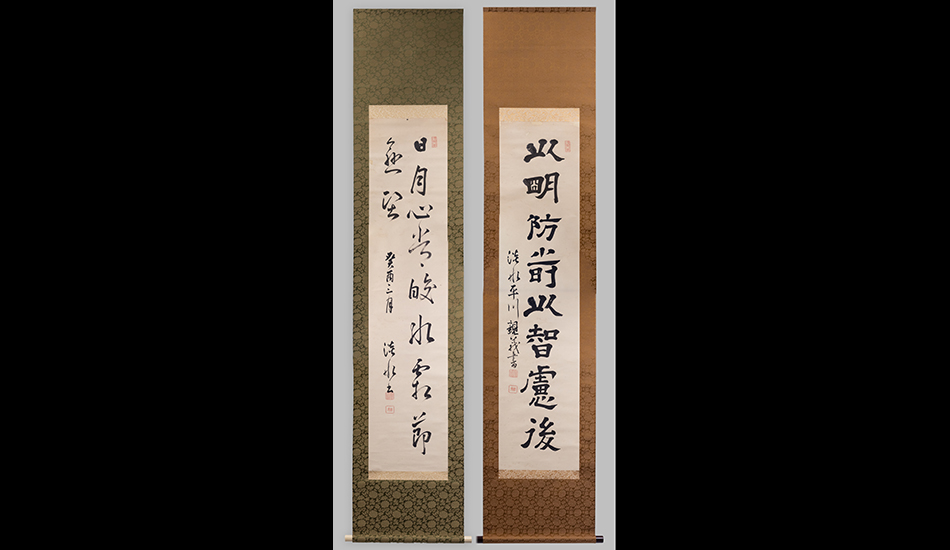 以明防前以智慮後
淡水平川義書
日月心常皎氷霜節
愈堅
癸酉三月 淡水書